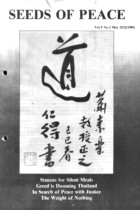 SEEDS OF PEACE
Vol.5 No.2 May 2532(1989)
道
蘭素桌
教授正之
己巳春
仁得書
Stanzas for Silent Meals
Greed is Dooming Thailand
In Search of Peace with Justice
The Weight of Nothing